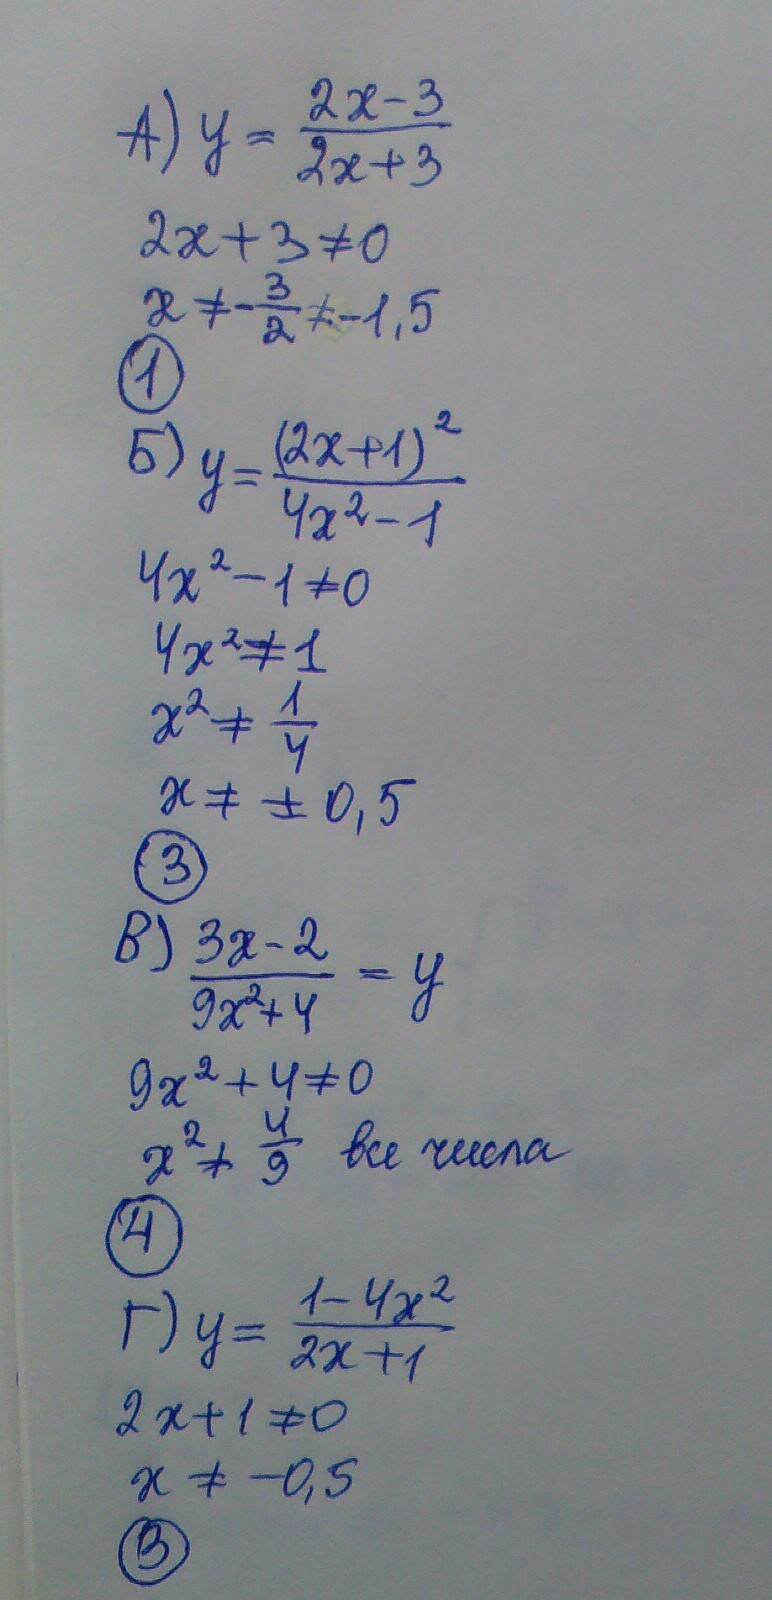 А) y = (2x-3)/(2x+3)
2x+3≠0
x ≠ -3/2 ≠ -1,5
1
Б) y = (2x+1)²/(4x²-1)
4x²-1≠0
4x²≠1
x² ≠ 1/4
x ≠ ± 0,5
3
В) (3x-2)/(9x²+4) = y
9x²+4≠0
x² ≠ 4/9 все числа
4
Г) y = (1-4x²)/(2x+1)
2x+1≠0
x ≠ -0,5